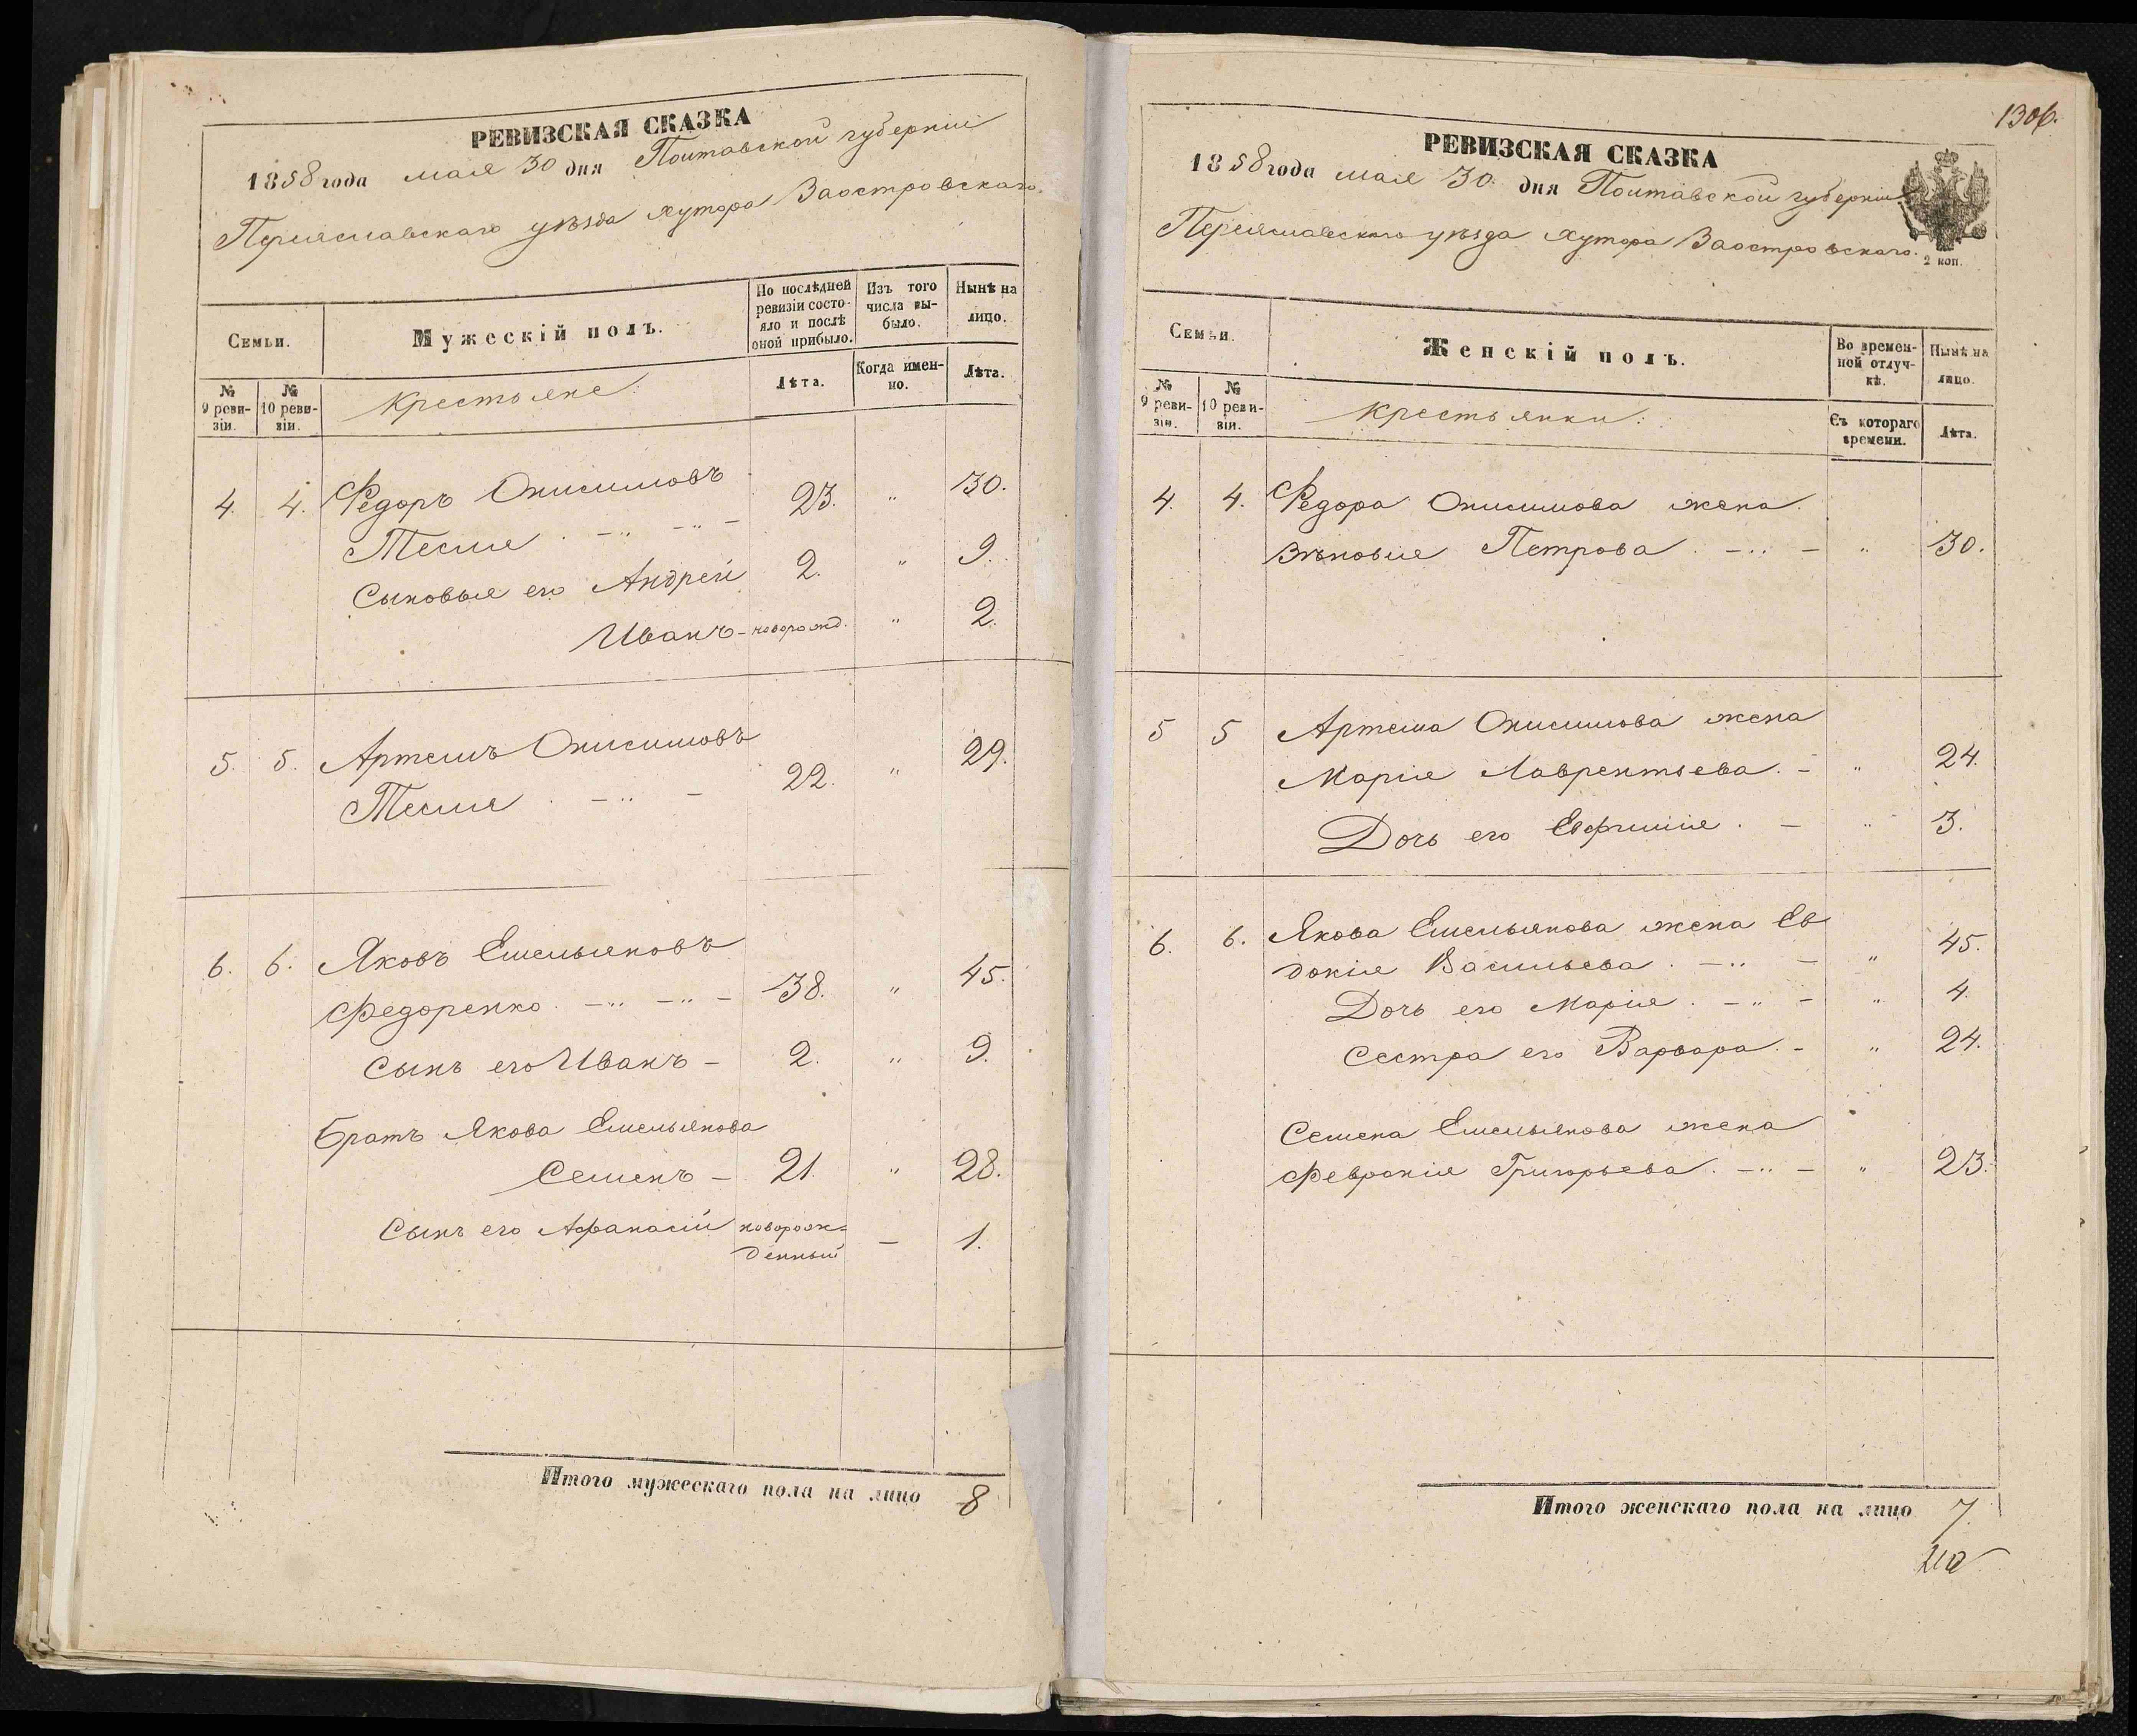 РЕВИЗСКАЯ СКАЗКА
1858 года мая 30 дня Полтавской губерніи
Переяславскаго уѣзда хутора Заостровскаго.
Семьи.
Мужескій полъ.
По послѣдней ревизіи состояло и послѣ оной прибыло.
Изъ того числа выбыло.
Нынѣ на лицо.
№ 9 ревизіи.
№ 10 ревизіи.
Крестьяне:
Лѣта.
Когда именно.
Лѣта.
4. 4. Федоръ Онисимовъ
Тесля . - „ - „ - 23. „ 30.
Сыновья его Андрей 2. „ 9.
Иванъ - новорожд. „ 2.
5. 5. Артемъ Онисимовъ
Тесля . - „ - 22. „ 29.
6. 6. Яковъ Емельяновъ
Федоренко . - „ - „ - 38. „ 45.
Сынъ его Иванъ - 2. „ 9.
Братъ Якова Емельянова
Семенъ - 21. „ 28.
Сынъ его Афанасій новорож=
денный - 1.
Итого мужескаго пола на лицо 8
130б.
РЕВИЗСКАЯ СКАЗКА
1858 года мая 30. дня Полтавской губерніи
Переяславскаго уѣзда хутора Заостровскаго.
2 коп.
Семьи.
Женскій полъ.
Во временной отлучкѣ.
Нынѣ на лицо.
№ 9 ревизіи.
№ 10 ревизіи.
Крестьянки:
Съ котораго времени.
Лѣта.
4. 4. Федора Онисимова жена
Зѣновія Петрова . - „ - „ 30.
5 5 Артема Онисимова жена
Марія Лаврентьева. - „ 24.
Дочь его Евфимія . - „ 3.
6. 6. Якова Емельянова жена Ев
докія Васильева . - „ - „ 45.
Дочь его Марія . - „ - „ 4.
Сестра его Варвара. - „ 24.
Семена Емельянова жена
Февронія Григорьева. - „ - „ 23.
Итого женскаго пола на лицо 7.